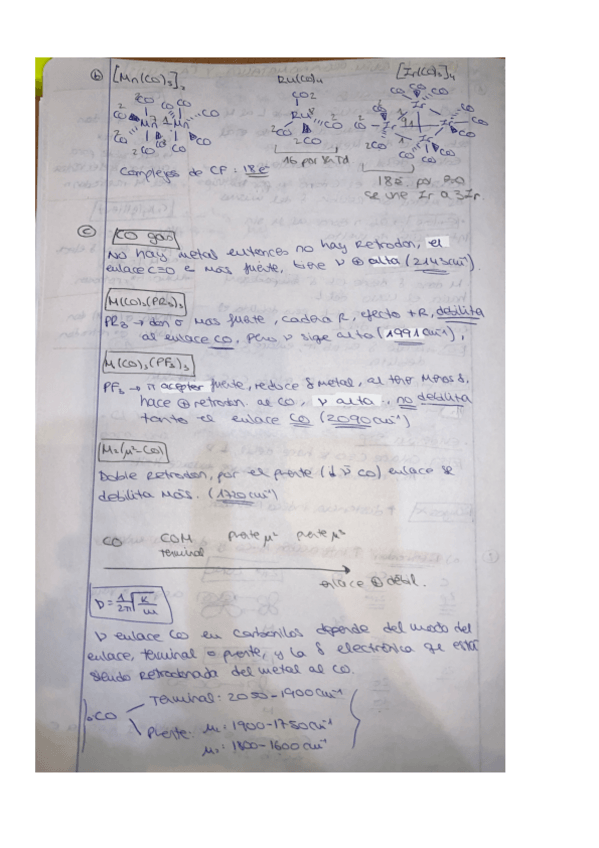 b) [Mn(CO)5]2 Ru(CO)4 [Ir(CO)3]4
16 por ser Td
Complejos de CP : 18 e-
18 e- por eso
se une Ir a 3 Ir.
c) CO gas
No hay metal entonces no hay Retrodon, el
enlace C≡O es más fuerte, tiene ν ⊕ alta (2143 cm-1).
M(CO)3(PR3)3
PR3 → don σ más fuerte, cadena R, efecto +R, debilita
al enlace CO, pero ν sige alto (1991 cm-1),
M(CO)3(PF3)3
PF3 → π acepter fuerte, reduce δ metal, al tener menos δ,
hace ⊕ retrodon. al CO, ν alta ∴ no debilita
tanto el enlace CO (2090 cm-1)
M2(μ2-CO)
Doble Retrodon, por el puente (↓ ν̄ CO) enlace se
debilita más. (1720 cm-1)
CO COM puente μ2 puente μ3
terminal
enlace ⊕ débil.
ν = 1/2π √k/m
ν enlace CO en carbonilos depende del modo del
enlace, terminal o puente, y la δ electrónica qe está
siendo retrodonada del metal al CO.
CO Terminal: 2050-1900 cm-1
Puente: μ2 = 1900-1750 cm-1
μ3 = 1800-1600 cm-1